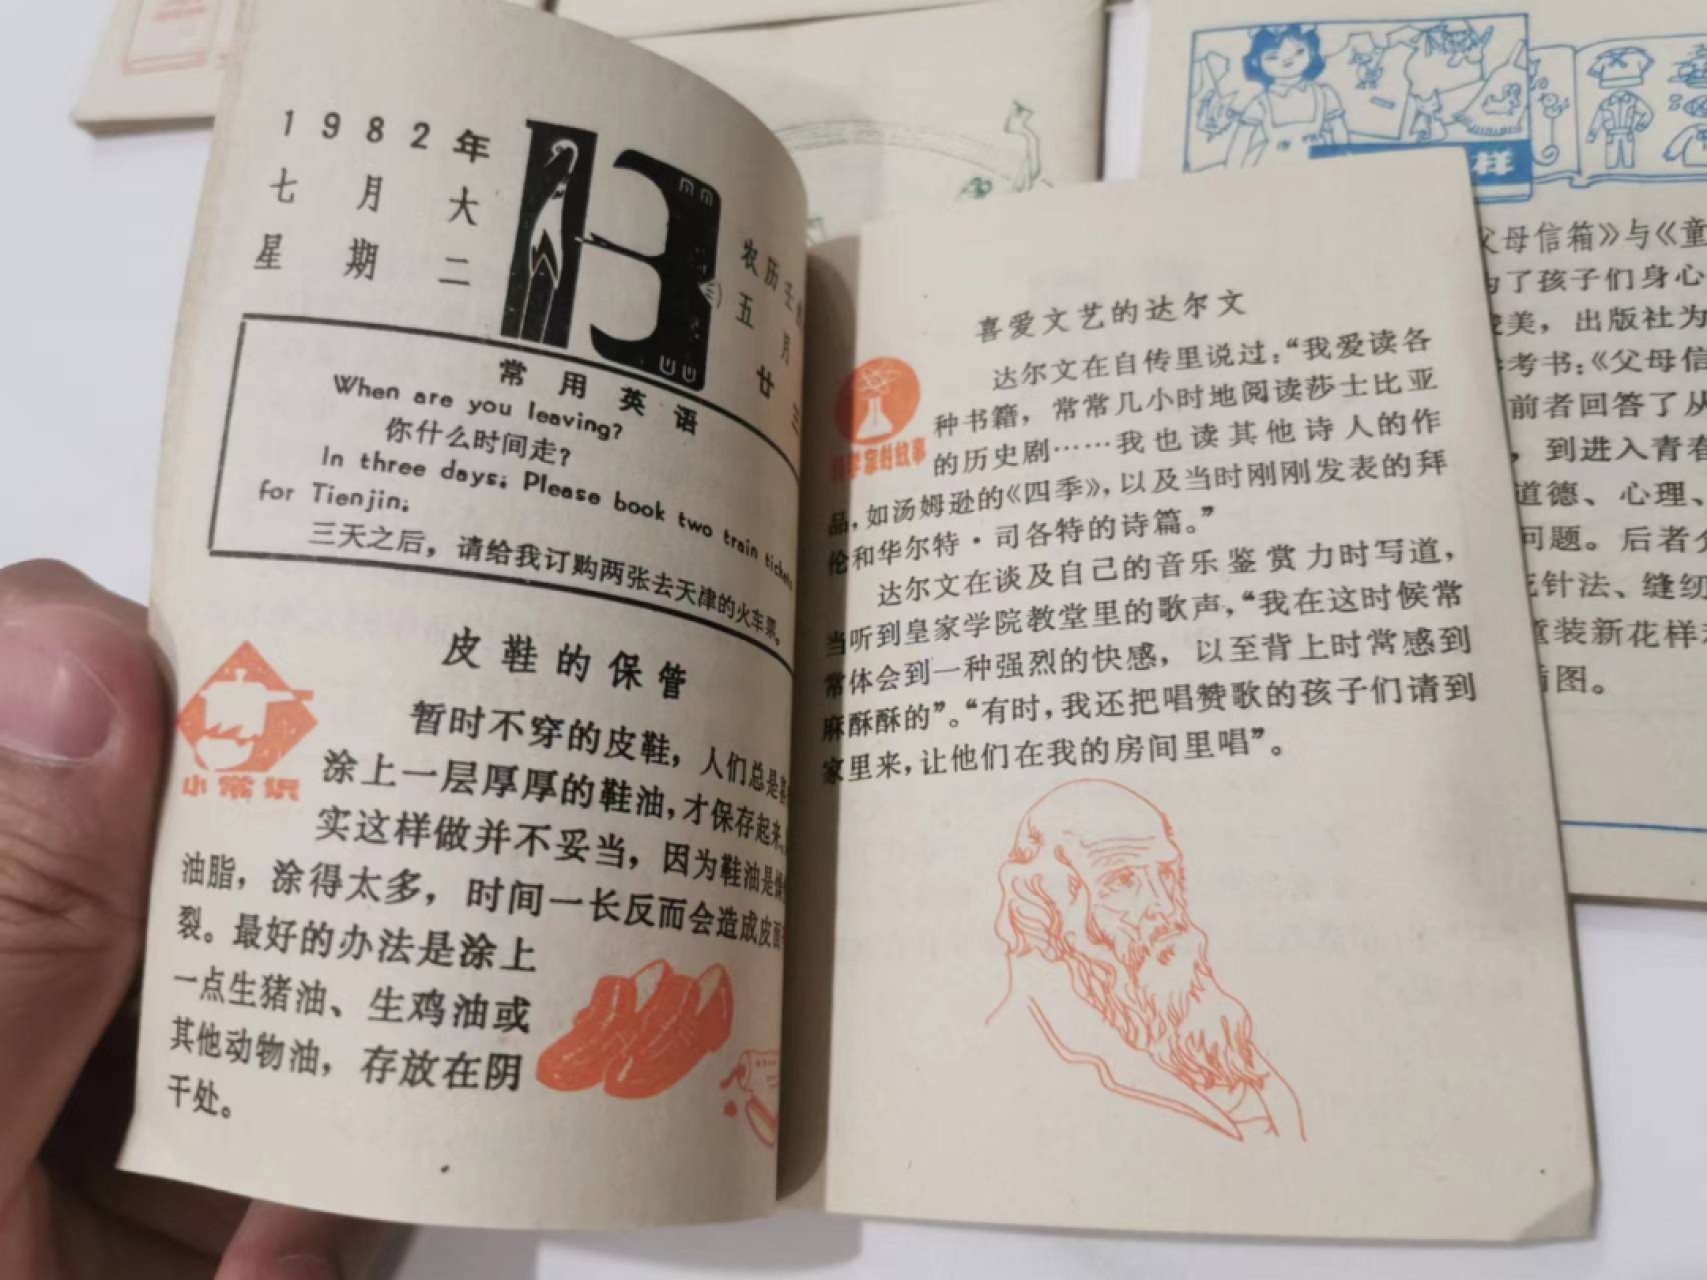 1982年
七月大
星期二
13
农历壬
五月
廿三
常用英语
When are you leaving?
你什么时间走?
In three days; Please book two train tickets
for Tienjin;
三天之后，请给我订购两张去天津的火车票。
皮鞋的保管
小常识
暂时不穿的皮鞋，人们总是喜
涂上一层厚厚的鞋油，才保存起来。
实这样做并不妥当，因为鞋油是
油脂，涂得太多，时间一长反而会造成皮面
裂。最好的办法是涂上
一点生猪油、生鸡油或
其他动物油，存放在阴
干处。
喜爱文艺的达尔文
科学家的故事
达尔文在自传里说过：“我爱读各
种书籍，常常几小时地阅读莎士比亚
的历史剧……我也读其他诗人的作
品，如汤姆逊的《四季》，以及当时刚刚发表的拜
伦和华尔特·司各特的诗篇。”
达尔文在谈及自己的音乐鉴赏力时写道，
当听到皇家学院教堂里的歌声，“我在这时候常
常体会到一种强烈的快感，以至背上时常感到
麻酥酥的”。“有时，我还把唱赞歌的孩子们请到
家里来，让他们在我的房间里唱”。
样
父母信箱》与《童
为了孩子们身心
美，出版社为
考书：《父母信
前者回答了从
，到进入青春
道德、心理、
问题。后者
花针法、缝纫
童装新花样
插图。